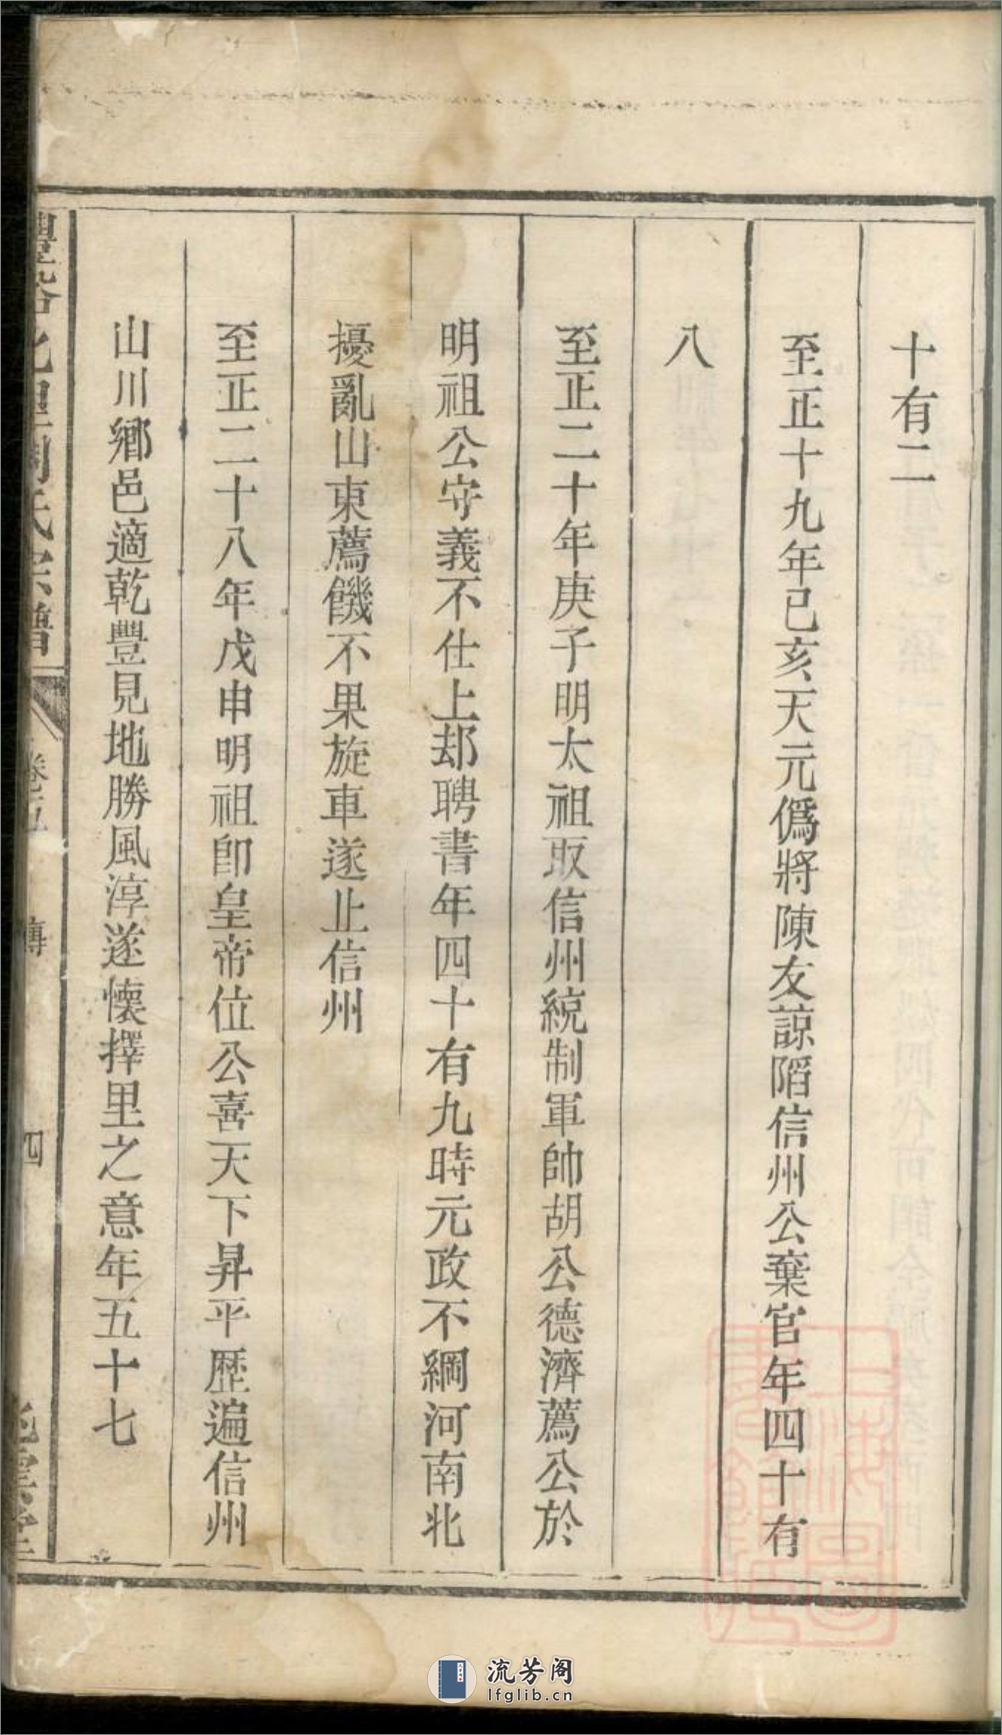 十有二
至正十九年己亥天元僞將陳友諒陷信州公棄官年四十有
八
至正二十年庚子明太祖取信州統制軍帥胡公德濟薦公於
明祖公守義不仕上却聘書年四十有九時元政不綱河南北
擾亂山東薦饑不果旋車遂止信州
至正二十八年戊申明祖卽皇帝位公喜天下昇平歷遍信州
山川鄉邑適乾豐見地勝風淳遂懷擇里之意年五十七
氏宗譜
卷五
傳
四
流芳阁
lfglib.cn